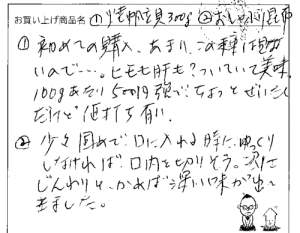 お買い上げ商品名 ①焼帆立貝300g ②おしゃぶり昆布
① 初めての購入、あまりこの種は買わ
ないので…。ヒモも肝も?ついていて美味。
100gあたり500円強で、ちょっとぜいたく
だけど値打ち有い
② 少々固めで口に入れる時に、ゆっくり
しなければ口内を切りそう。次に
じんわりと、かめば深い味が出て
きました。